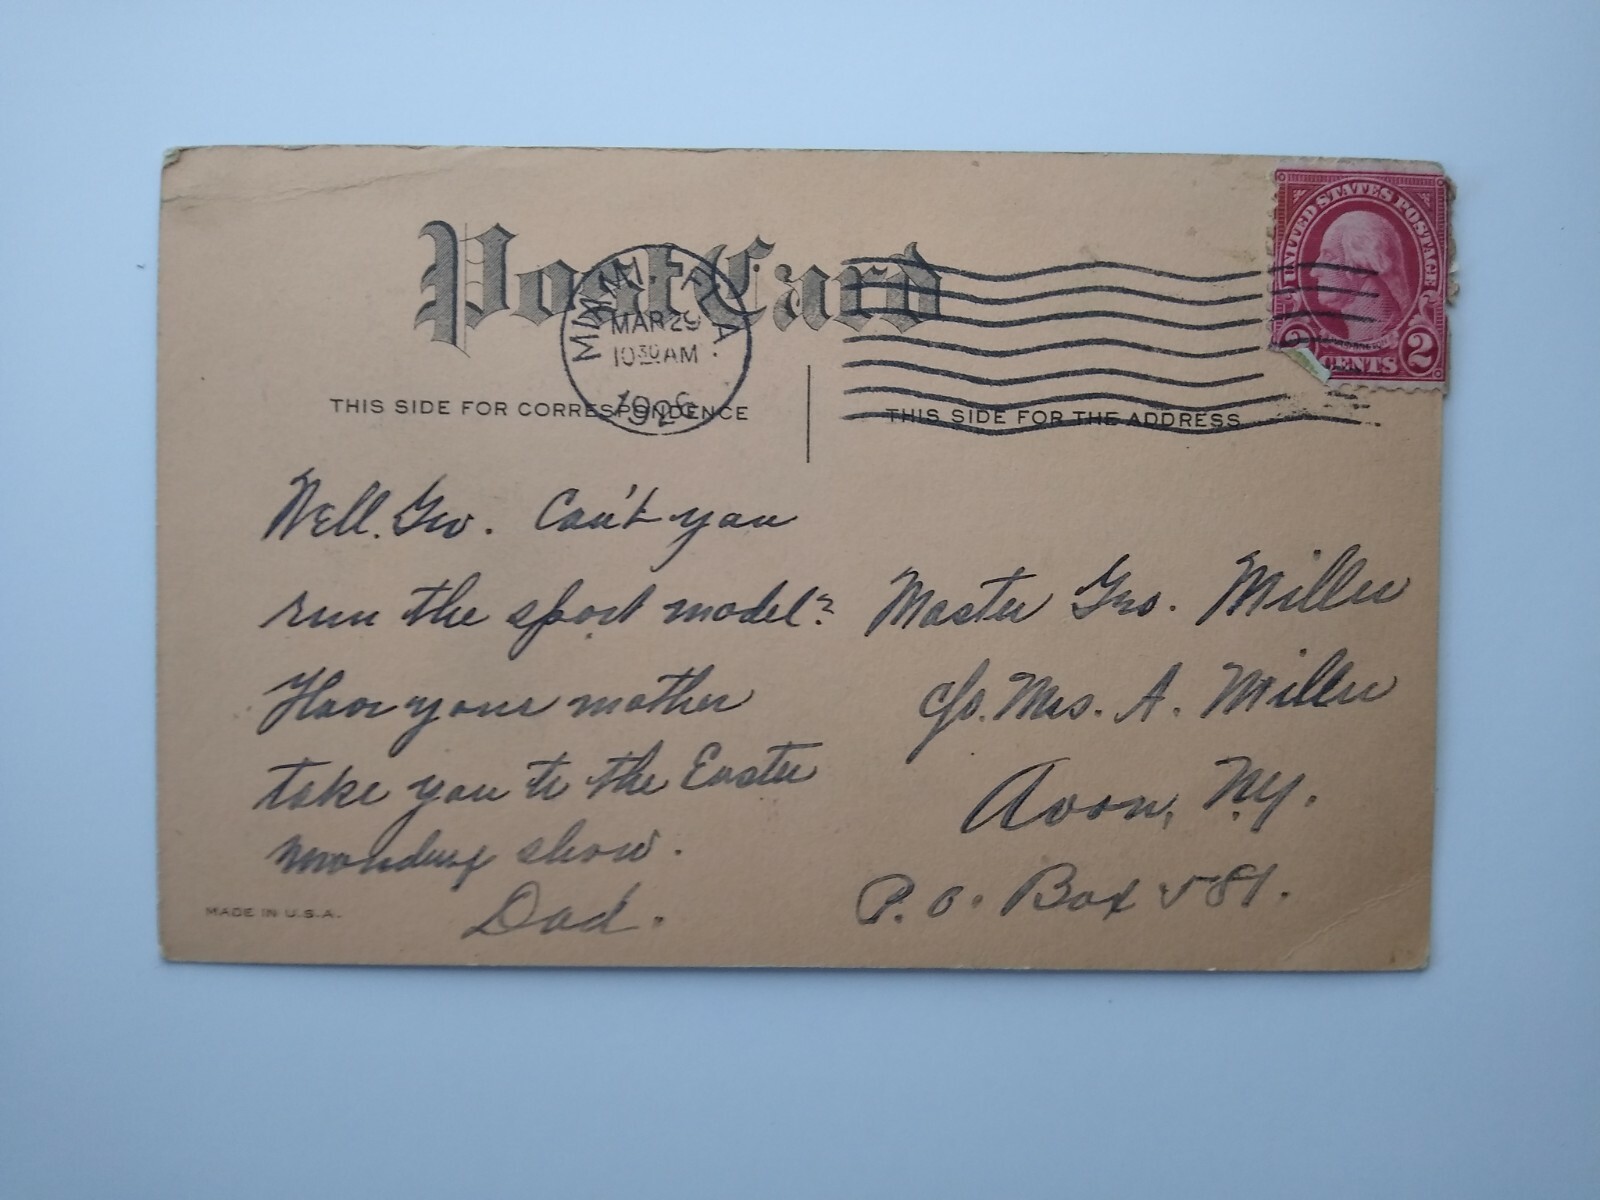 Post Card
MIAMI, FLA.
MAR 29
10 30 AM
192
UNITED STATES POSTAGE
2 CENTS 2
THIS SIDE FOR CORRESPONDENCE
THIS SIDE FOR THE ADDRESS
Well. Geo. Can't you
run the sport model?
Have your mother
take you to the Easter
monday show.
Dad.
MADE IN U.S.A.
Master Geo. Miller
c/o. Mrs. A. Miller
Avon, N.Y.
P.O. Box 581.